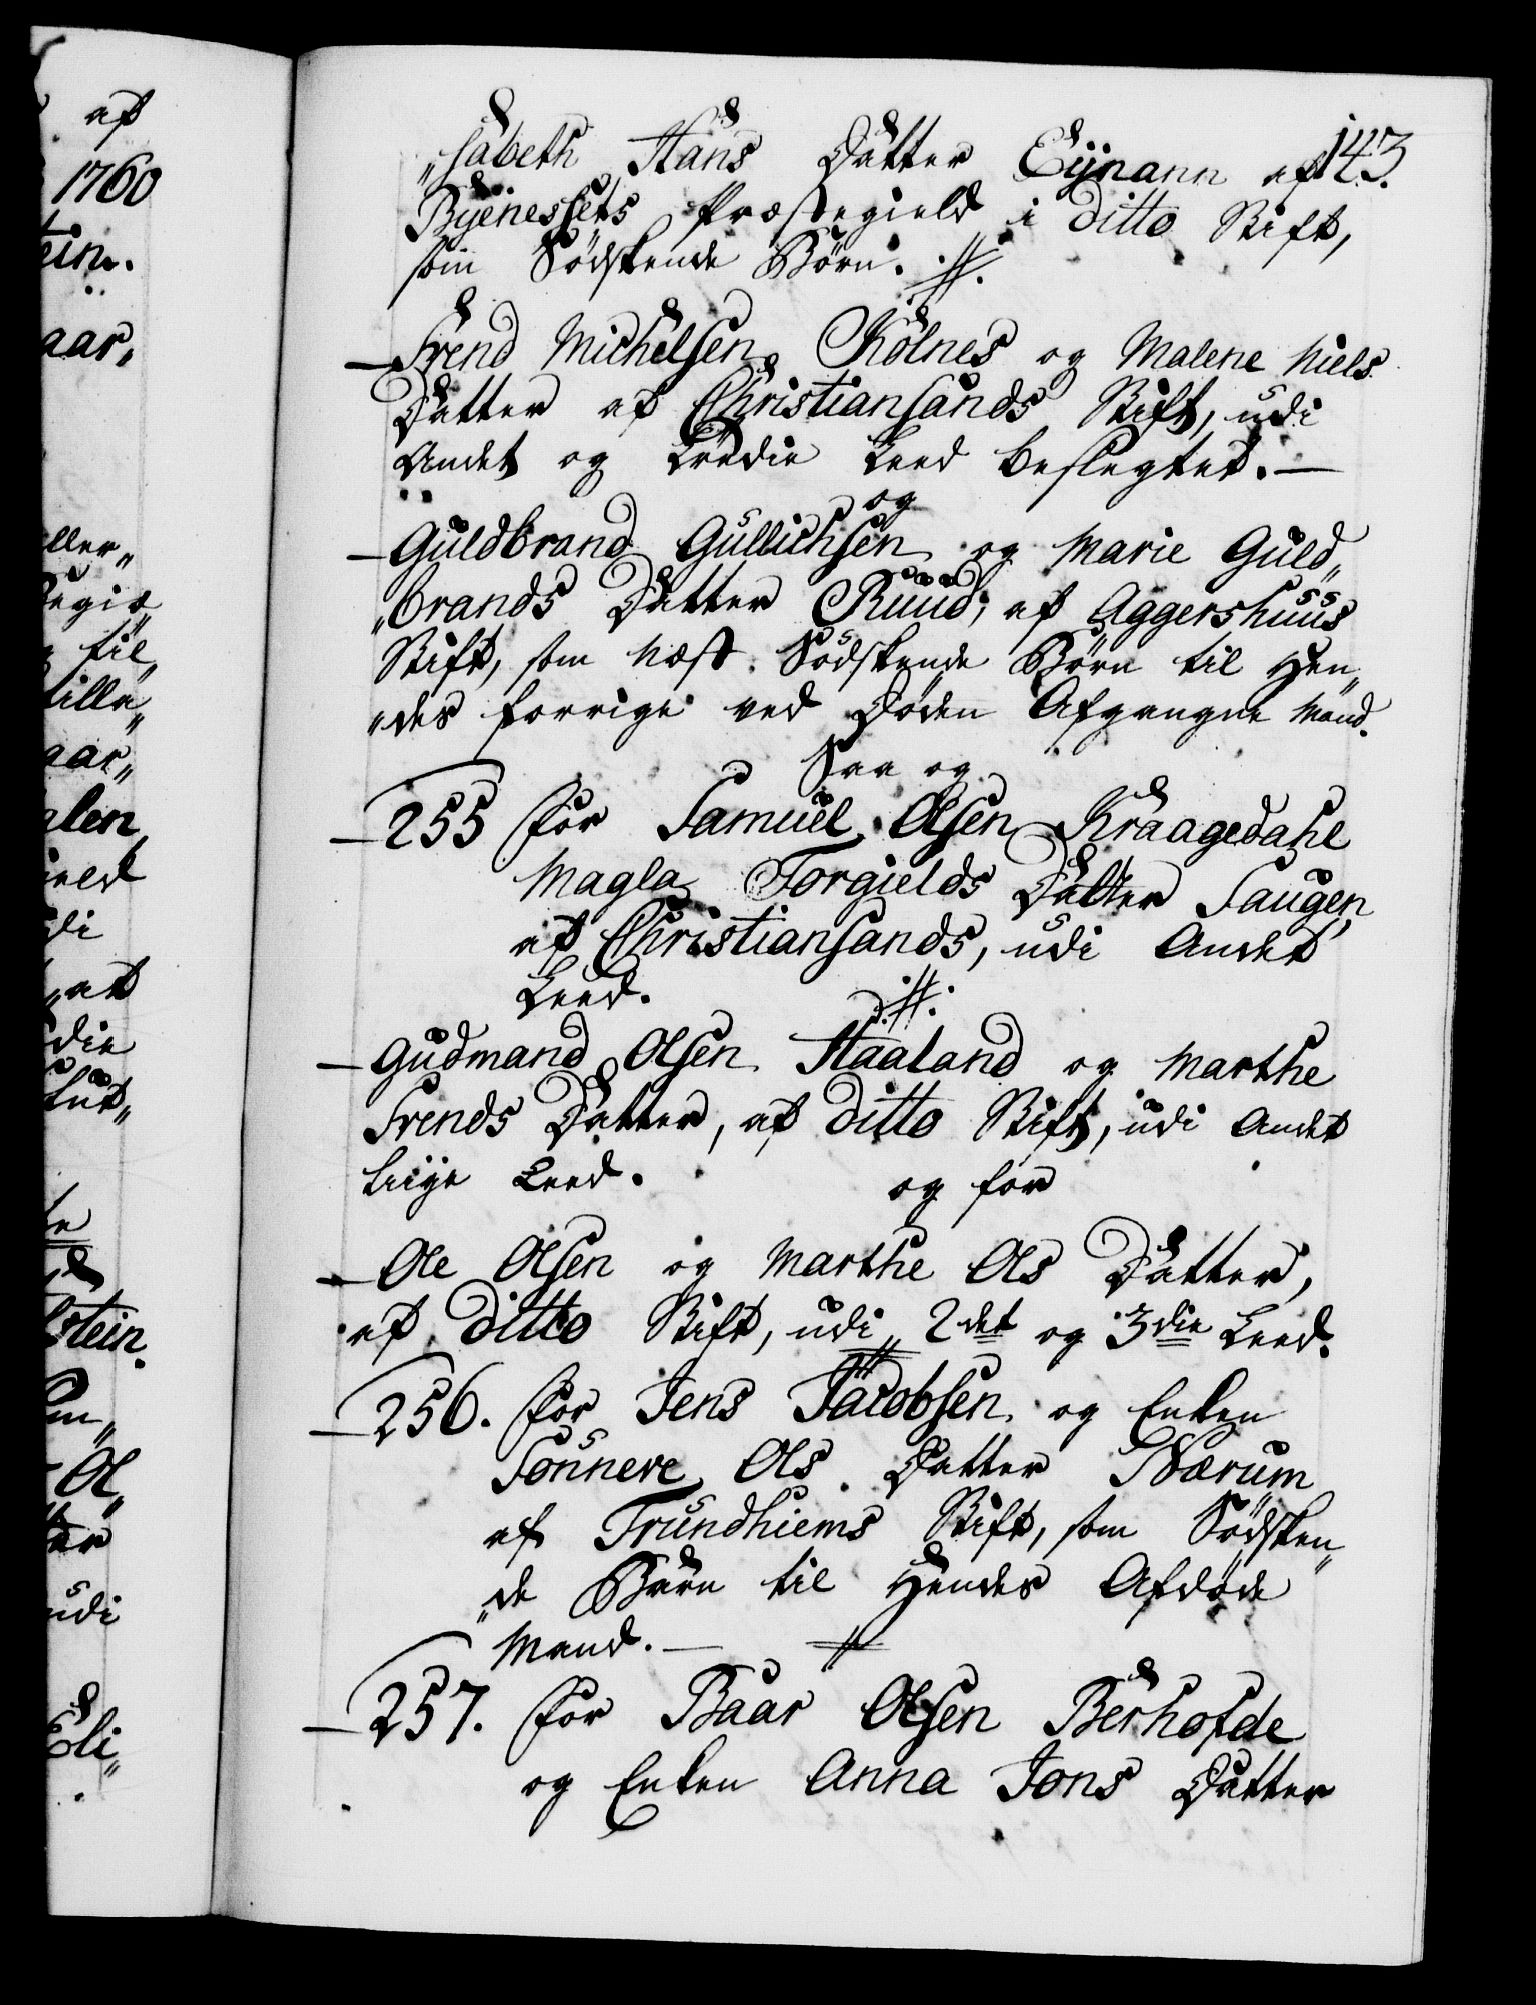 af
1760
tein.
aar,
ller„
Regie„
til„
tilla„
aar„
alen
ield
di
„at
die
stein.
Ol„
ter
udi
Eli„
143.
„sabeth Hans Datter Eijnann af
Byenessets Præstegield i ditto Stift,
som Södskende Börn. ·//·
— Svend Michelsen Kolnes og Malene Niels
Datter af Christiansands Stift, udi
Andet og Tredie Leed beslegtet. —
og
— Guldbrand Gullichsen og Marie Guld„
„brands Datter Ruud, af Aggershuus
Stift, som Næst Södskende Börn til Hen„
„des forrige ved Döden Afgangne Mand.
Saa og
— 255 for Samuel Olsen Kraagedahl
Magla Torgields Datter Haugen,
af Christiansands, udi Andet
Leed. ·//·
— Gudmand Olsen Haaland og Marthe
Svends Datter, af ditto Stift, udi Andet
Liige Leed. og for
— Ole Olsen og Marthe Ols Datter,
af ditto Stift, udi 2det og 3die Leed.
— 256. for Jens Jacobsen og Enken
Sonnere Ols Datter Nærum
af Trundhiems Stift, som Södsken„
„de Börn til Hendes Afdöde
Mand. —
— 257. for Baar Olsen Berhofde
og Enken Anna Jons Datter